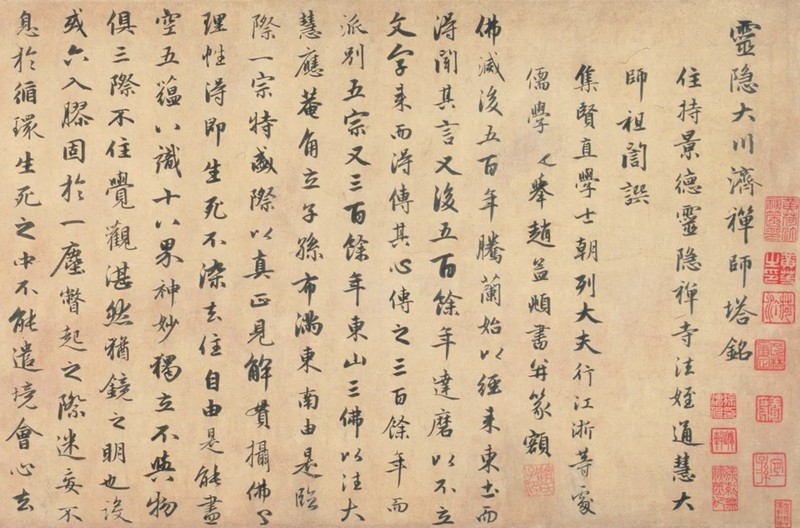 靈隐大川濟禪師塔銘
住持景德靈隐禪寺法姪通慧大
師祖誾譔
集賢直學士朝列大夫行江浙等處
儒學提舉趙孟頫書并篆額
佛滅後五百年騰蘭始以經來東土而
得聞其言又後五百餘年達磨以不立
文字来而得傳其心傳之三百餘年而
派别五宗又三百餘年東山三佛以法大
慧應菴角立子孫布滿東南由是臨
際一宗特盛際以真正見解貫攝佛與
理性得即生死不染去住自由是能盡
空五蕴八識十八界神妙獨立不與物
俱三際不住覺觀湛然猶鏡之明也設
或六入膠固於一塵瞥起之際迷妄不
息於循環生死之中不能遣境會心去